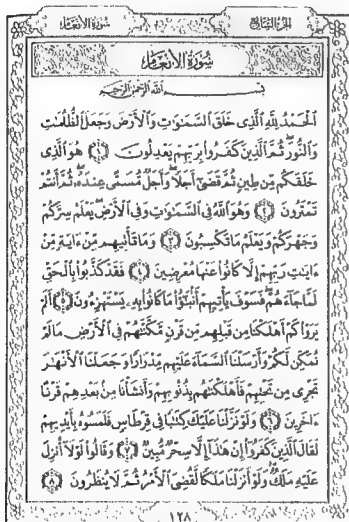 الجزء السابع
سورة الأنعام
سورة الأنعام
بسم الله الرحمن الرحيم
ٱلْحَمْدُ لِلَّهِ ٱلَّذِى خَلَقَ ٱلسَّمَٰوَٰتِ وَٱلْأَرْضَ وَجَعَلَ ٱلظُّلُمَٰتِ
وَٱلنُّورَ ۖ ثُمَّ ٱلَّذِينَ كَفَرُوا۟ بِرَبِّهِمْ يَعْدِلُونَ ﴿١﴾ هُوَ ٱلَّذِى
خَلَقَكُم مِّن طِينٍ ثُمَّ قَضَىٰٓ أَجَلًا ۖ وَأَجَلٌ مُّسَمًّى عِندَهُۥ ۖ ثُمَّ أَنتُمْ
تَمْتَرُونَ ﴿٢﴾ وَهُوَ ٱللَّهُ فِى ٱلسَّمَٰوَٰتِ وَفِى ٱلْأَرْضِ ۖ يَعْلَمُ سِرَّكُمْ
وَجَهْرَكُمْ وَيَعْلَمُ مَا تَكْسِبُونَ ﴿٣﴾ وَمَا تَأْتِيهِم مِّنْ ءَايَةٍ مِّنْ
ءَايَٰتِ رَبِّهِمْ إِلَّا كَانُوا۟ عَنْهَا مُعْرِضِينَ ﴿٤﴾ فَقَدْ كَذَّبُوا۟ بِٱلْحَقِّ
لَمَّا جَآءَهُمْ ۖ فَسَوْفَ يَأْتِيهِمْ أَنۢبَٰٓؤُا۟ مَا كَانُوا۟ بِهِۦ يَسْتَهْزِءُونَ ﴿٥﴾ أَلَمْ
يَرَوْا۟ كَمْ أَهْلَكْنَا مِن قَبْلِهِم مِّن قَرْنٍ مَّكَّنَّٰهُمْ فِى ٱلْأَرْضِ مَا لَمْ
نُمَكِّن لَّكُمْ وَأَرْسَلْنَا ٱلسَّمَآءَ عَلَيْهِم مِّدْرَارًا وَجَعَلْنَا ٱلْأَنْهَٰرَ
تَجْرِى مِن تَحْتِهِمْ فَأَهْلَكْنَٰهُم بِذُنُوبِهِمْ وَأَنشَأْنَا مِنۢ بَعْدِهِمْ قَرْنًا
ءَاخَرِينَ ﴿٦﴾ وَلَوْ نَزَّلْنَا عَلَيْكَ كِتَٰبًا فِى قِرْطَاسٍ فَلَمَسُوهُ بِأَيْدِيهِمْ
لَقَالَ ٱلَّذِينَ كَفَرُوٓا۟ إِنْ هَٰذَآ إِلَّا سِحْرٌ مُّبِينٌ ﴿٧﴾ وَقَالُوا۟ لَوْلَآ أُنزِلَ
عَلَيْهِ مَلَكٌ ۖ وَلَوْ أَنزَلْنَا مَلَكًا لَّقُضِىَ ٱلْأَمْرُ ثُمَّ لَا يُنظَرُونَ ﴿٨﴾
١٢٨